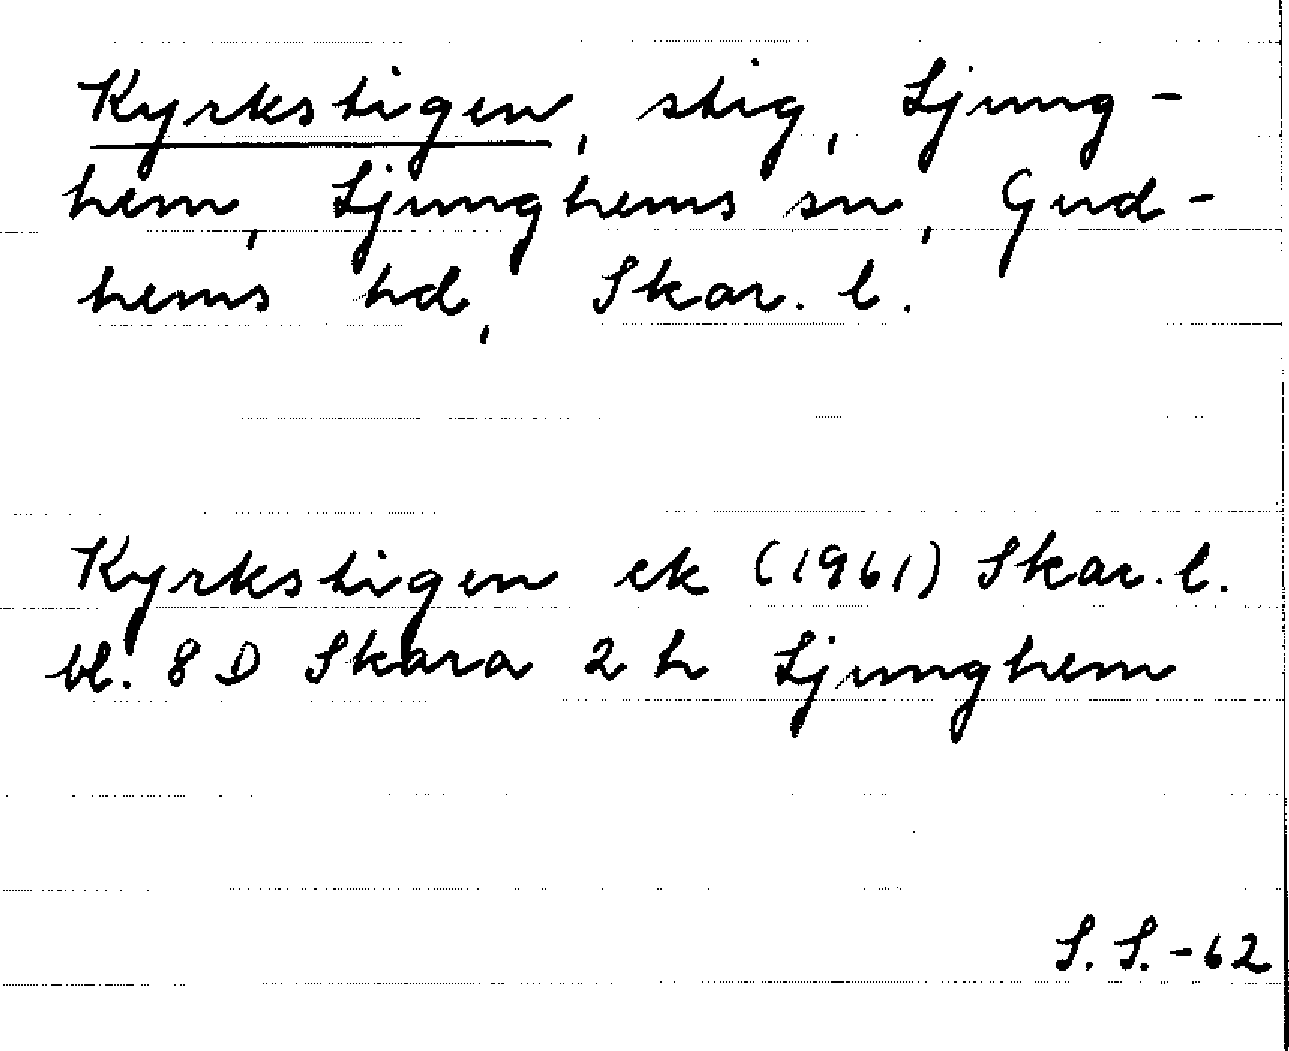 Kyrkstigen, stig, Ljung-
hem, Ljunghems sn, Gud-
hems hd, Skar. l.
Kyrkstigen ek (1961) Skar. l.
bl. 8 D Skara 2 h Ljunghem
S. S. -62